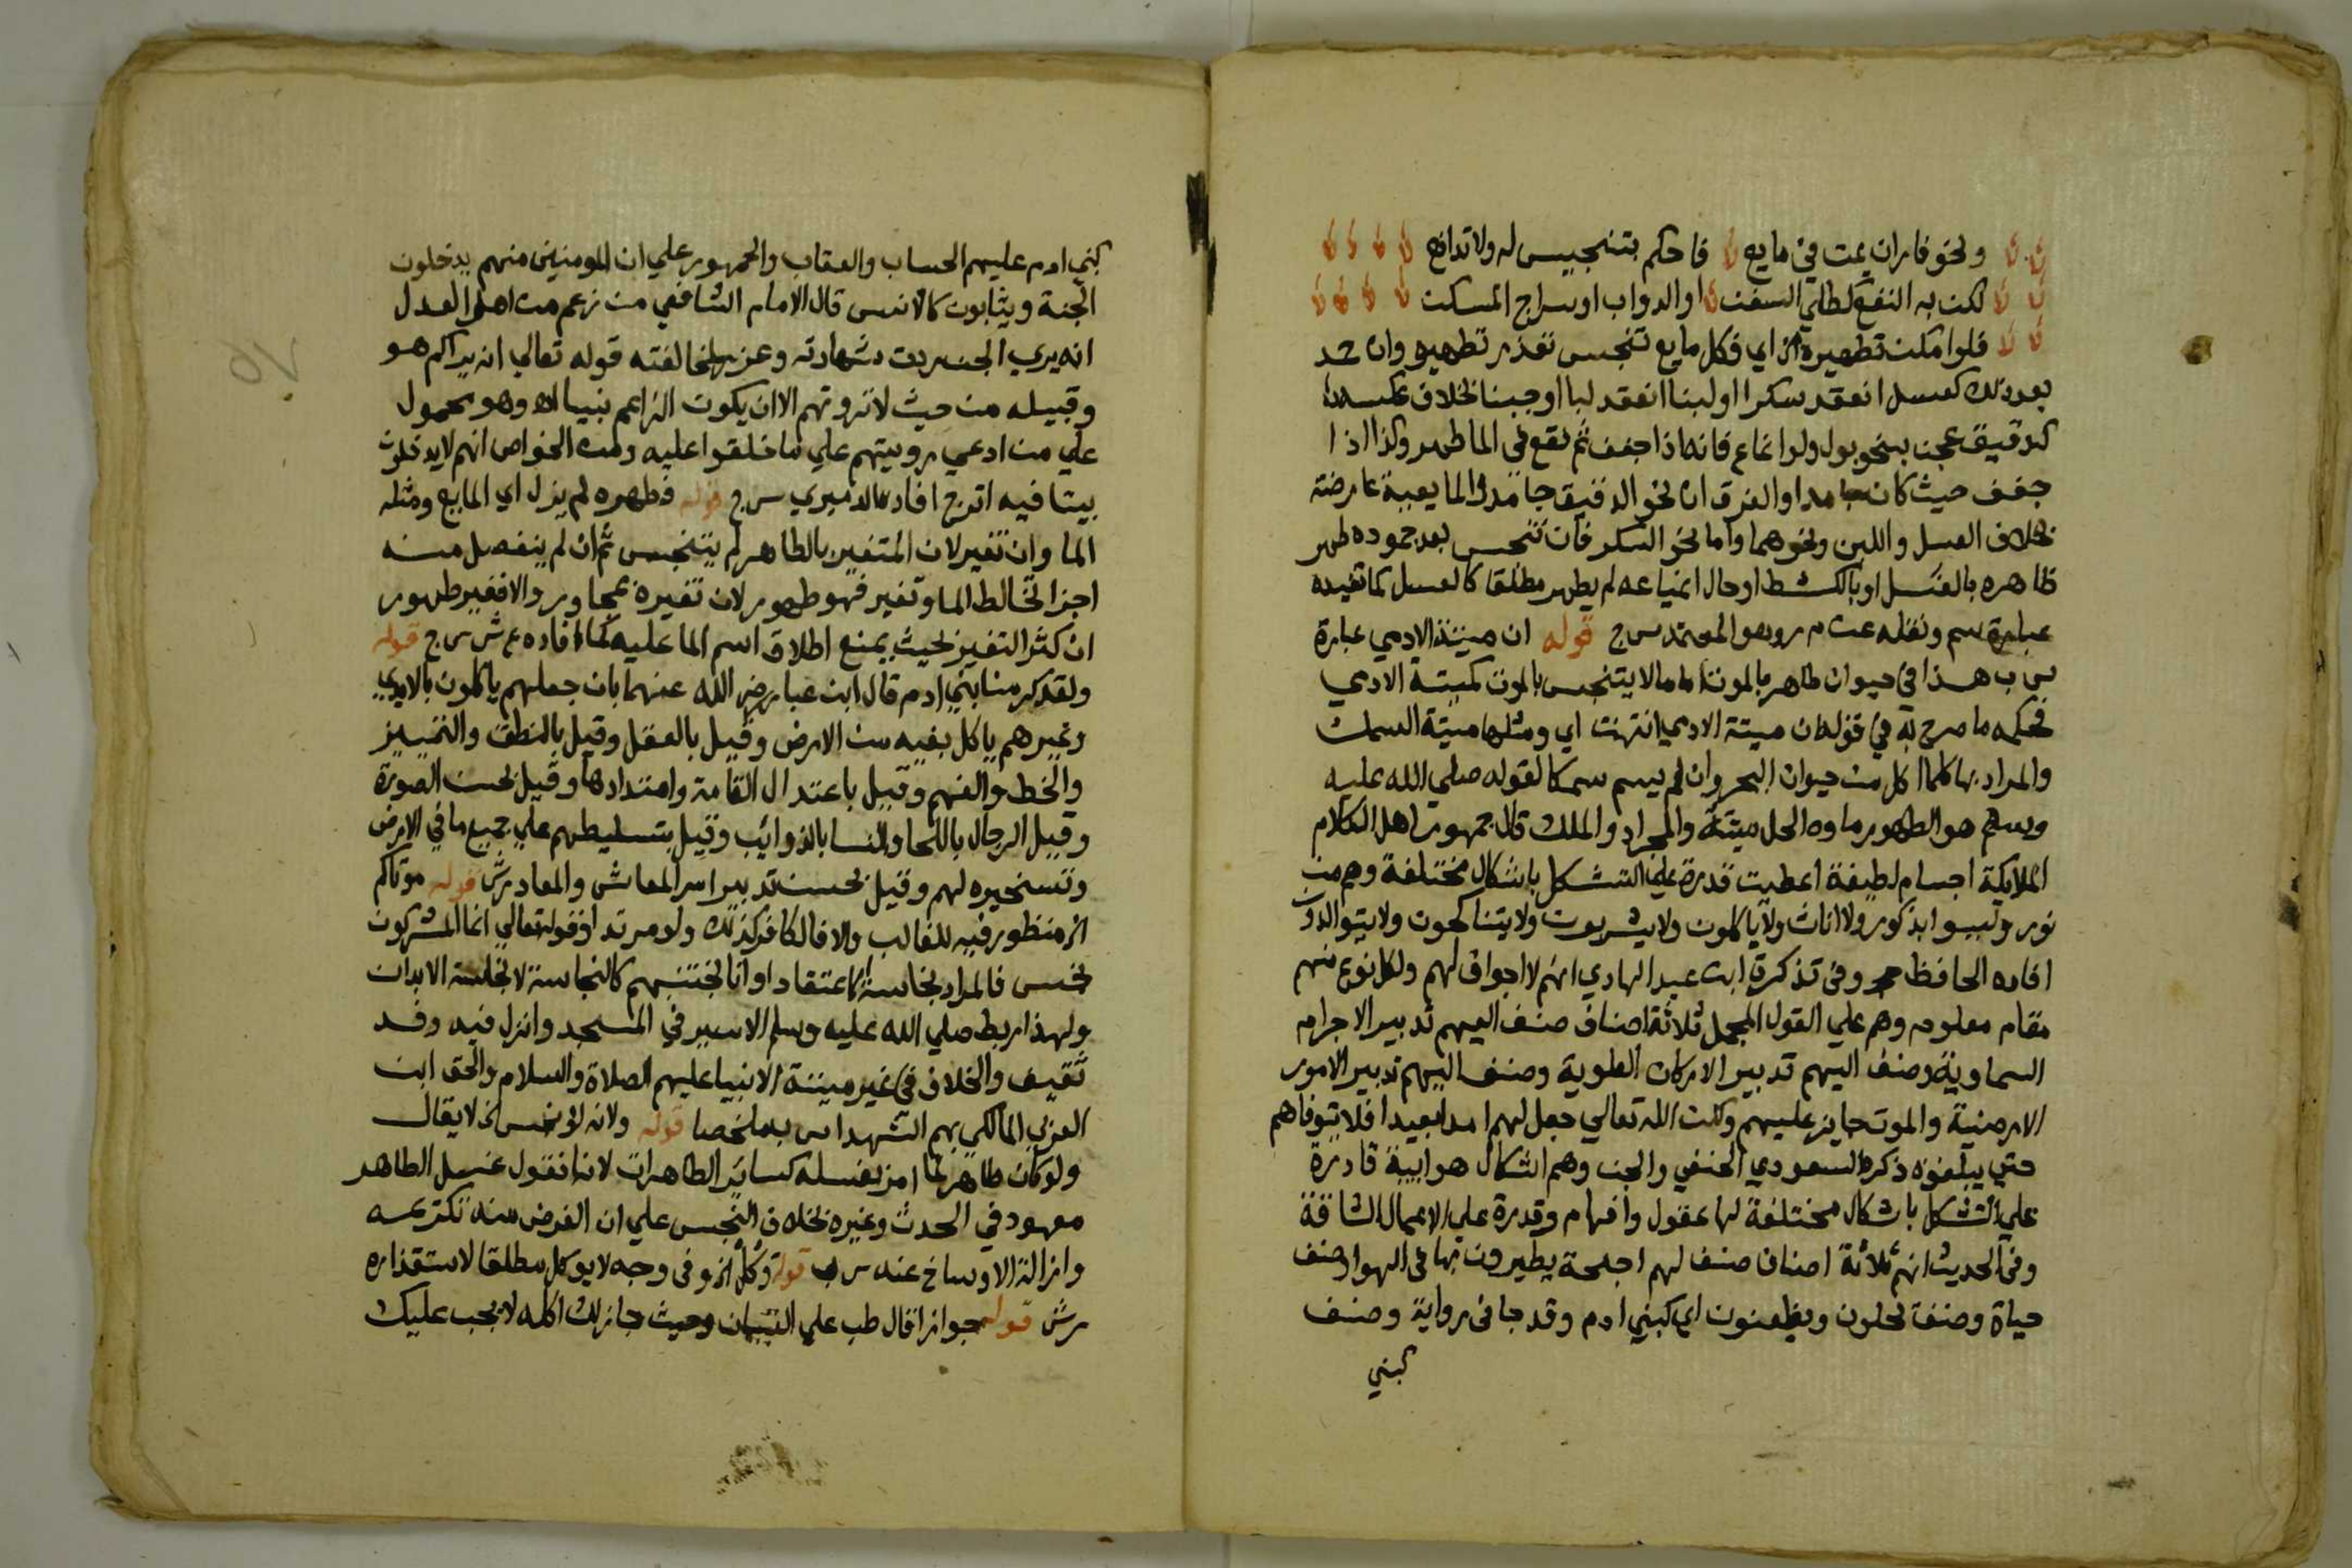 ونحو فاران يمت في مايع فاحكم بتنجيس له ولا تدافع
لكن به النفع لطلي السفن او الدواب او سراج المسكن
فلو امكن تطهيره الخ اي فكل مايع تنجس تعذر تطهيره وان جمد
بعد ذلك كعسل انعقد سكرا او لبنا انعقد لبا او جبنا بخلاف عكسه
كدقيق عجن بنحو بول ولو انماع فانه اذا جفف ثم نقع في الما طهر وكذا اذا
جفف حيث كان جامدا والفرق ان نحو الدقيق جامد والمايعية عارضة
بخلاف العسل واللبن ونحوهما واما نحو السكر فان تنجس بعد جموده طهر
ظاهره بالغسل او بالكشط او حال انمياعه لم يطهر مطلقا كالعسل كما تفيده
عبارة سم ونقله عن م ر وهو المعتمد س ج قوله ان ميتة الادمي عبارة
س ب هذا في حيوان طاهر بالموت اما ما لا يتنجس بالموت كميتة الادمي
فحكمه ما صرح به في قوله ان ميتة الادمي انتهت اي ومثلها ميتة السمك
والمراد بها كلما اكل من حيوان البحر وان لم يسم سمكا لقوله صلي الله عليه
وسلم هو الطهور ماوه الحل ميتته والجراد والملك قال جمهور اهل الكلام
الملايكة اجسام لطيفة اعطيت قدرة علي التشكل باشكال مختلفة وهم من
نور وليسوا بذكور ولا اناث ولا ياكلون ولا يشربون ولا يتناكحون ولا يتوالدون
افاده الحافظ حجر وفي تذكرة ابن عبد الهادي انهم لا اجواف لهم ولكل نوع منهم
مقام معلوم وهم علي القول المجمل ثلاثة اصناف صنف اليهم تدبير الاجرام
السماوية وصنف اليهم تدبير الاركان العلوية وصنف اليهم تدبير الامور
الارضية والموت جايز عليهم ولكن الله تعالي جعل لهم امدا بعيدا فلا يتوفاهم
حتي يبلغوه ذكره السعودي الحنفي والجن وهم اشكال هوايية قادرة
علي التشكل باشكال مختلفة لها عقول وافهام وقدرة علي الاعمال الشاقة
وفي الحديث انهم ثلاثة اصناف صنف لهم اجنحة يطيرون بها في الهوا وصنف
حياة وصنف يحلون ويظعنون اي كبني ادم وقد جا في رواية وصنف
كبني
كبني ادم عليهم الحساب والعقاب والجمهور علي ان المومنين منهم يدخلون
الجنة ويثابون كالانس قال الامام الشافعي من زعم من اهل العدل
انه يري الجن ردت شهادته وعزر لمخالفته قوله تعالي انه يراكم هو
وقبيله من حيث لا ترونهم الا ان يكون الزاعم نبيا اه وهو محمول
علي من ادعي رويتهم علي ما خلقوا عليه ومن الخواص انهم لا يدخلون
بيتا فيه اترج افاده الدميري س ج قوله فطهره لم يزل اي المايع ومثله
الما وان تغير لان المتغير بالطاهر لم يتنجس ثم ان لم ينفصل منه
اجزا تخالط الما وتغير فهو طهور لان تغيره بمجاور والا فغير طهور
ان كثر التغيز بحيث يمنع اطلاق اسم الما عليه كما افاده ع ش س ج قوله
ولقد كرمنا بني ادم قال ابن عباس رضي الله عنهما بان جعلهم ياكلون بالايدي
وغيرهم ياكل بفيه من الارض وقيل بالعقل وقيل بالنطق والتمييز
والخط والفهم وقيل باعتدال القامة وامتدادها وقيل بحسن الصورة
وقيل الرجال باللحا والنسا بالذوايب وقيل بتسليطهم علي جميع ما في الارض
وتسخيره لهم وقيل بحسن تدبير امر المعاش والمعاد ر ش قوله موتاكم
الخ منظور فيه للغالب والا فالكافر كذلك ولو مرتدا وقوله تعالي انما المشركون
نجس فالمراد نجاسة الاعتقاد او انا نجتنبهم كالنجاسة لا نجاسة الابدان
ولهذا ربط صلي الله عليه وسلم الاسير في المسجد وانزل فيه وفد
ثقيف والخلاف في غير ميتة الانبيا عليهم الصلاة والسلام والحق ابن
العربي المالكي بهم الشهدا س ب ملخصا قوله ولانه لو نجس الخ لا يقال
ولو كان طاهرا لما امر بغسله كساير الطاهرات لانا نقول غسل الطاهر
معهود في الحدث وغيره بخلاف النجس علي ان الغرض منه تكريمه
وازالة الاوساخ عنه س ب قوله وكل الخ وفي وجه لا يوكل مطلقا لاستقذاره
ر ش قوله جواز اقال طب علي التبيان وحيث جاز لك اكله لا يجب عليك